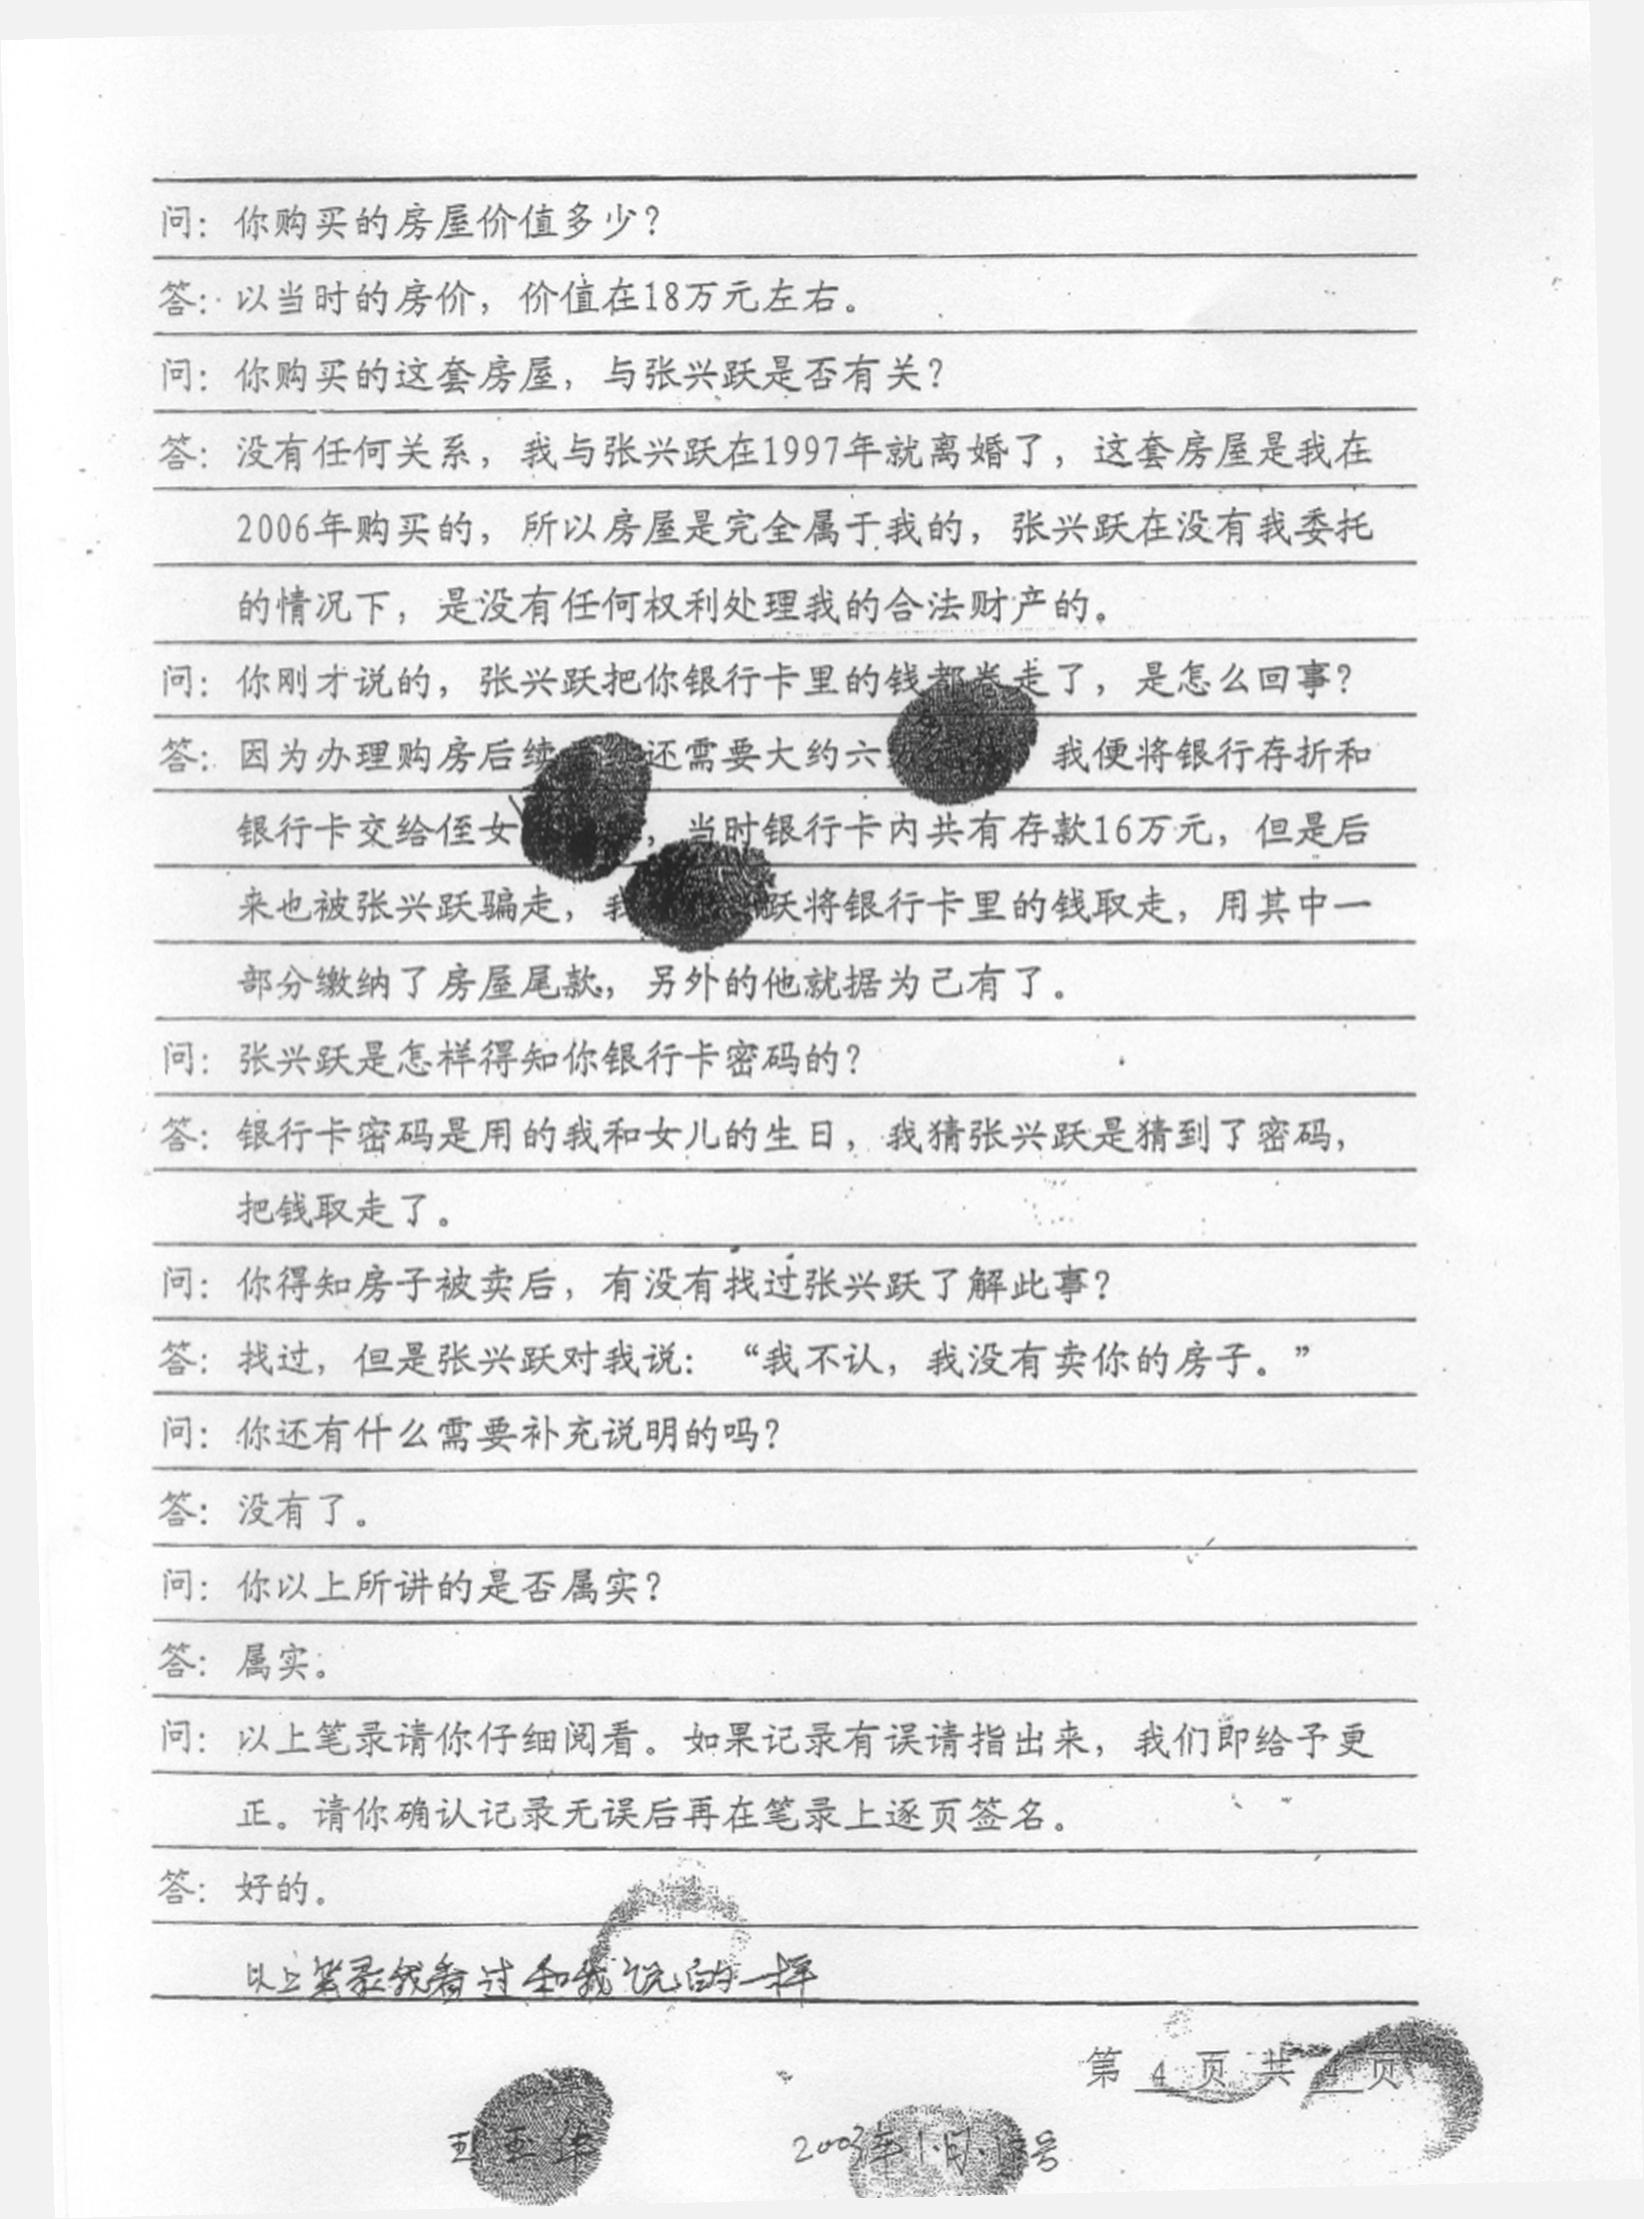 问：你购买的房屋价值多少？
答：以当时的房价，价值在18万元左右。
问：你购买的这套房屋，与张兴跃是否有关？
答：没有任何关系，我与张兴跃在1997年就离婚了，这套房屋是我在
2006年购买的，所以房屋是完全属于我的，张兴跃在没有我委托
的情况下，是没有任何权利处理我的合法财产的。
问：你刚才说的，张兴跃把你银行卡里的钱都卷走了，是怎么回事？
答：因为办理购房后续 还需要大约六 我便将银行存折和
银行卡交给侄女 ，当时银行卡内共有存款16万元，但是后
来也被张兴跃骗走，我 跃将银行卡里的钱取走，用其中一
部分缴纳了房屋尾款，另外的他就据为己有了。
问：张兴跃是怎样得知你银行卡密码的？
答：银行卡密码是用的我和女儿的生日，我猜张兴跃是猜到了密码，
把钱取走了。
问：你得知房子被卖后，有没有找过张兴跃了解此事？
答：找过，但是张兴跃对我说：“我不认，我没有卖你的房子。”
问：你还有什么需要补充说明的吗？
答：没有了。
问：你以上所讲的是否属实？
答：属实。
问：以上笔录请你仔细阅看。如果记录有误请指出来，我们即给予更
正。请你确认记录无误后再在笔录上逐页签名。
答：好的。
以上笔录我看过和我说的一样
第 4 页 共 页
玉华 年1月 号